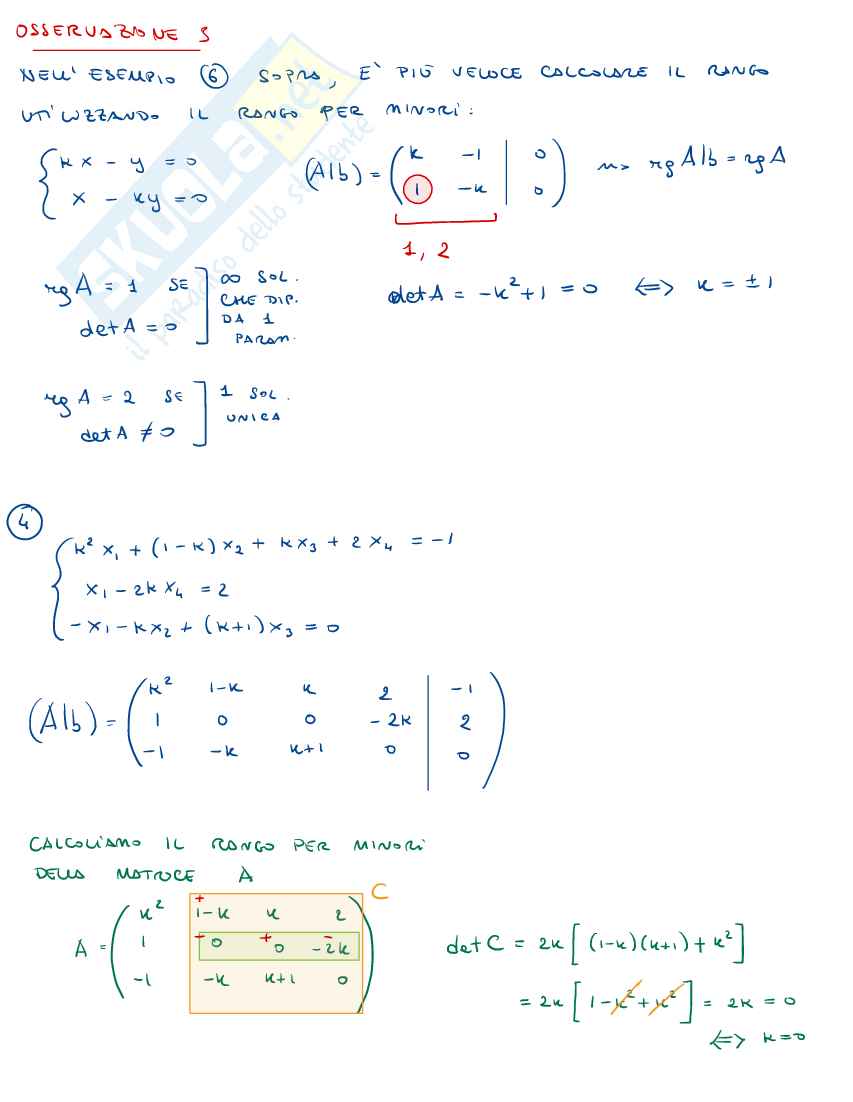 OSSERVAZIONE 3
NELL' ESEMPIO ⑥ SOPRA, E' PIÙ VELOCE CALCOLARE IL RANGO
UTILIZZANDO IL RANGO PER MINORI:
{ kx - y = 0
x - ky = 0
(A|b) = ( k -1 | 0
1 -k | 0 ) ~> rg A|b = rg A
1, 2
rg A = 1 SE
det A = 0
] ∞ SOL.
CHE DIP.
DA 1
PARAM.
det A = -k² + 1 = 0 <=> k = ± 1
rg A = 2 SE
det A ≠ 0
] 1 SOL.
UNICA
④
{ k² x₁ + (1-k) x₂ + k x₃ + 2 x₄ = -1
x₁ - 2k x₄ = 2
- x₁ - k x₂ + (k+1) x₃ = 0
(A|b) = ( k² 1-k k 2 | -1
1 0 0 -2k | 2
-1 -k k+1 0 | 0 )
CALCOLIAMO IL RANGO PER MINORI
DELLA MATROCE A
C
A = ( k² +1-k k 2
1 -0 +0 - -2k
-1 -k k+1 0 )
det C = 2k [ (1-k)(k+1) + k² ]
= 2k [ 1 - k² + k² ] = 2k = 0
<=> k = 0
SKUOLA.net
il paradiso dello studente